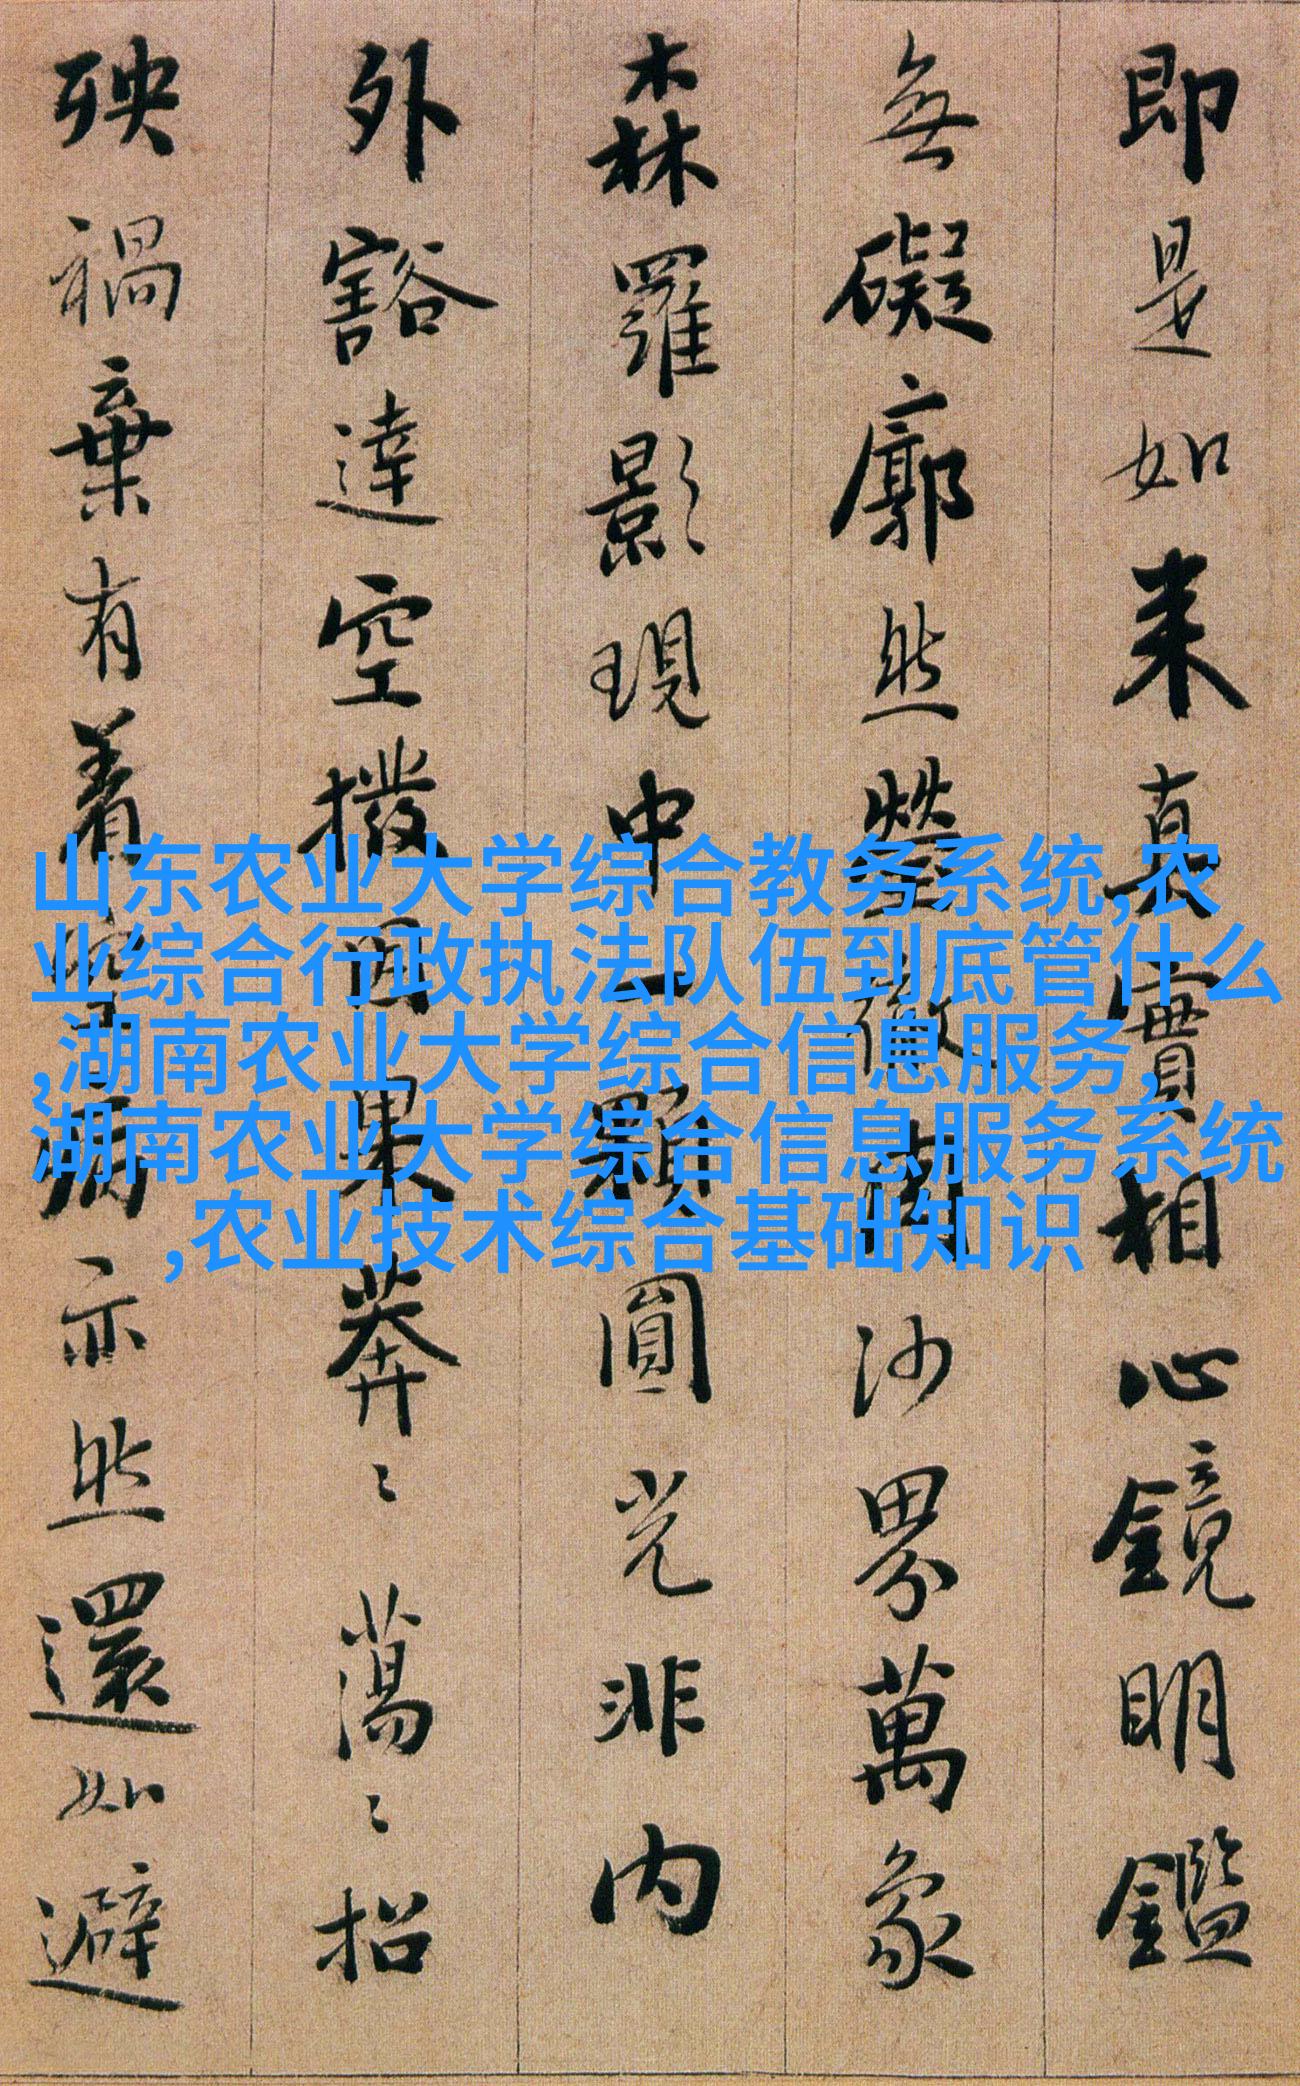 即是如来真實相心鏡明鑑
無礙廓然瑩徹周沙界萬象
森羅影現中一顆圓光非内
外豁達空撥因果莽〻蕩〻招
殃禍棄有着空病亦然還如避
山东农业大学综合教务系统,农
业综合行政执法队伍到底管什么
,湖南农业大学综合信息服务,
湖南农业大学综合信息服务系统
,农业技术综合基础知识